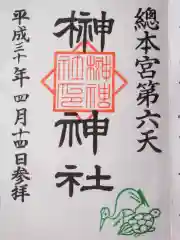 總本宮第六天
榊神社
榊神
社印
平成三十年四月十四日参拝